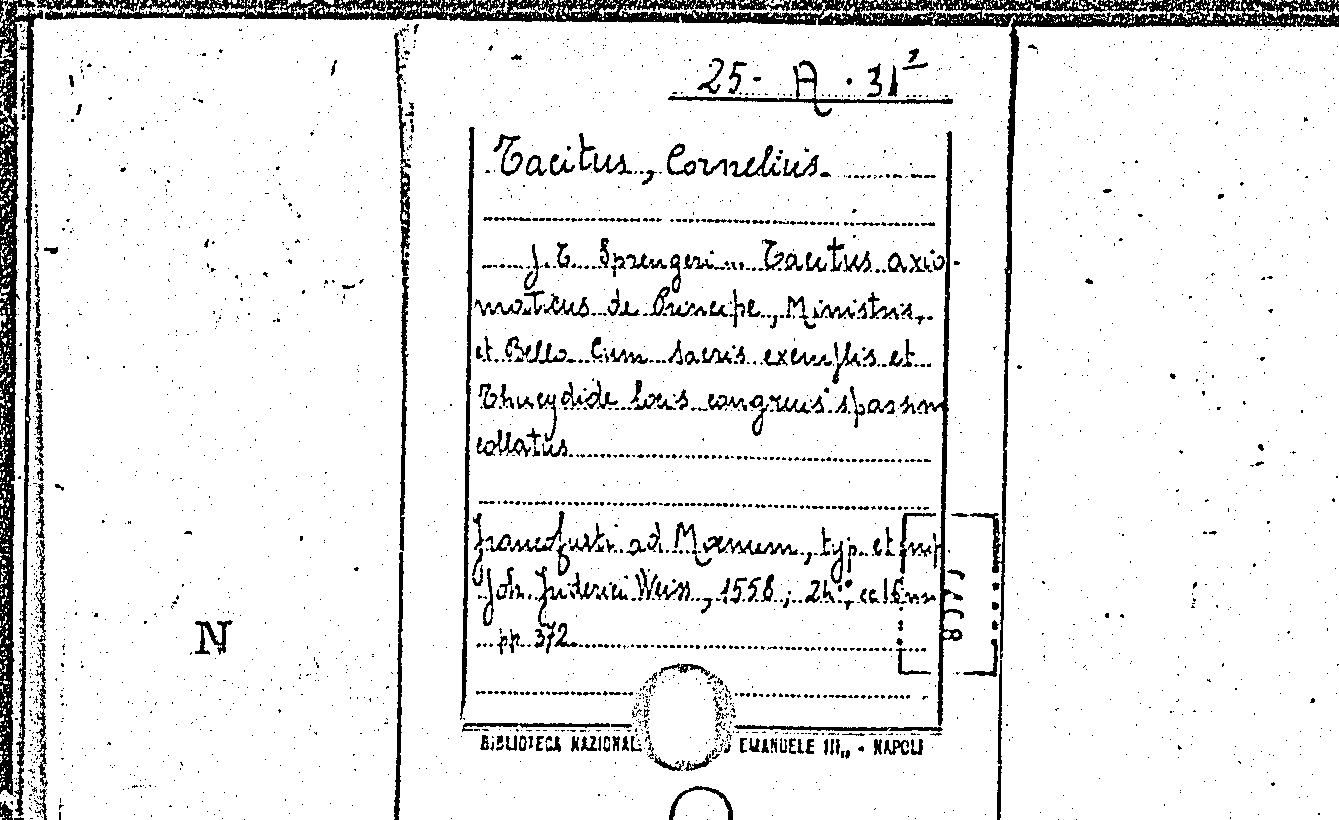 25- A. 31²
Tacitus, Cornelius.
J. T. Sprengeri... Tacitus axio-
maticus de Principe, Ministris,
et Bello Cum sacris exemplis et
Thucydide locis congruis spassim
collatus
Francofurti ad Mœnum, typ. et imp.
Joh. Friderici Weiss, 1558; 24°;
pp 372
N
BIBLIOTECA NAZIONAL EMANUELE III,, - NAPOLI